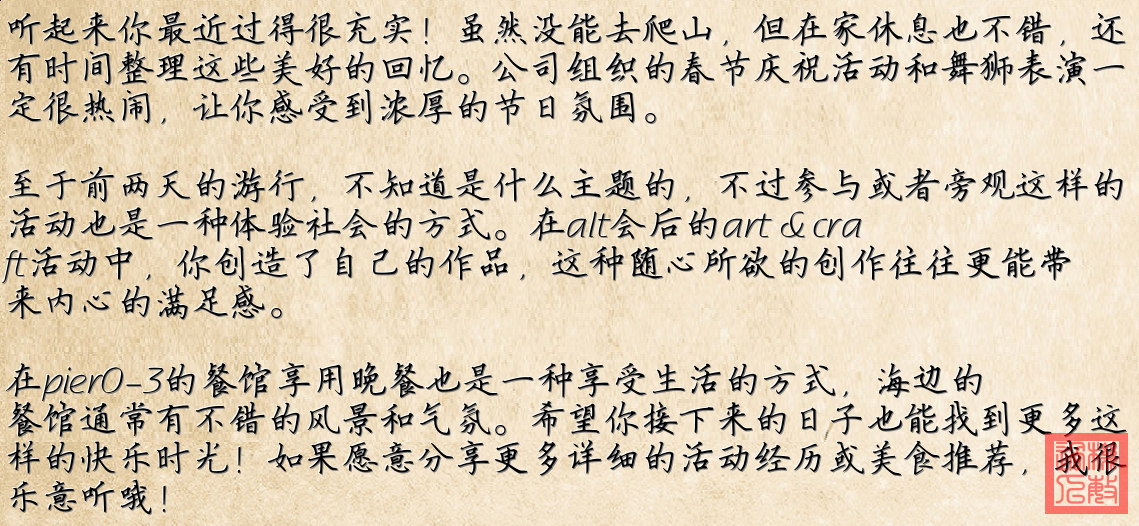 听起来你最近过得很充实！虽然没能去爬山，但在家休息也不错，还
有时间整理这些美好的回忆。公司组织的春节庆祝活动和舞狮表演一
定很热闹，让你感受到浓厚的节日氛围。
至于前两天的游行，不知道是什么主题的，不过参与或者旁观这样的
活动也是一种体验社会的方式。在alt会后的art & cra
ft活动中，你创造了自己的作品，这种随心所欲的创作往往更能带
来内心的满足感。
在pier0-3的餐馆享用晚餐也是一种享受生活的方式，海边的
餐馆通常有不错的风景和气氛。希望你接下来的日子也能找到更多这
样的快乐时光！如果愿意分享更多详细的活动经历或美食推荐，我很
乐意听哦！